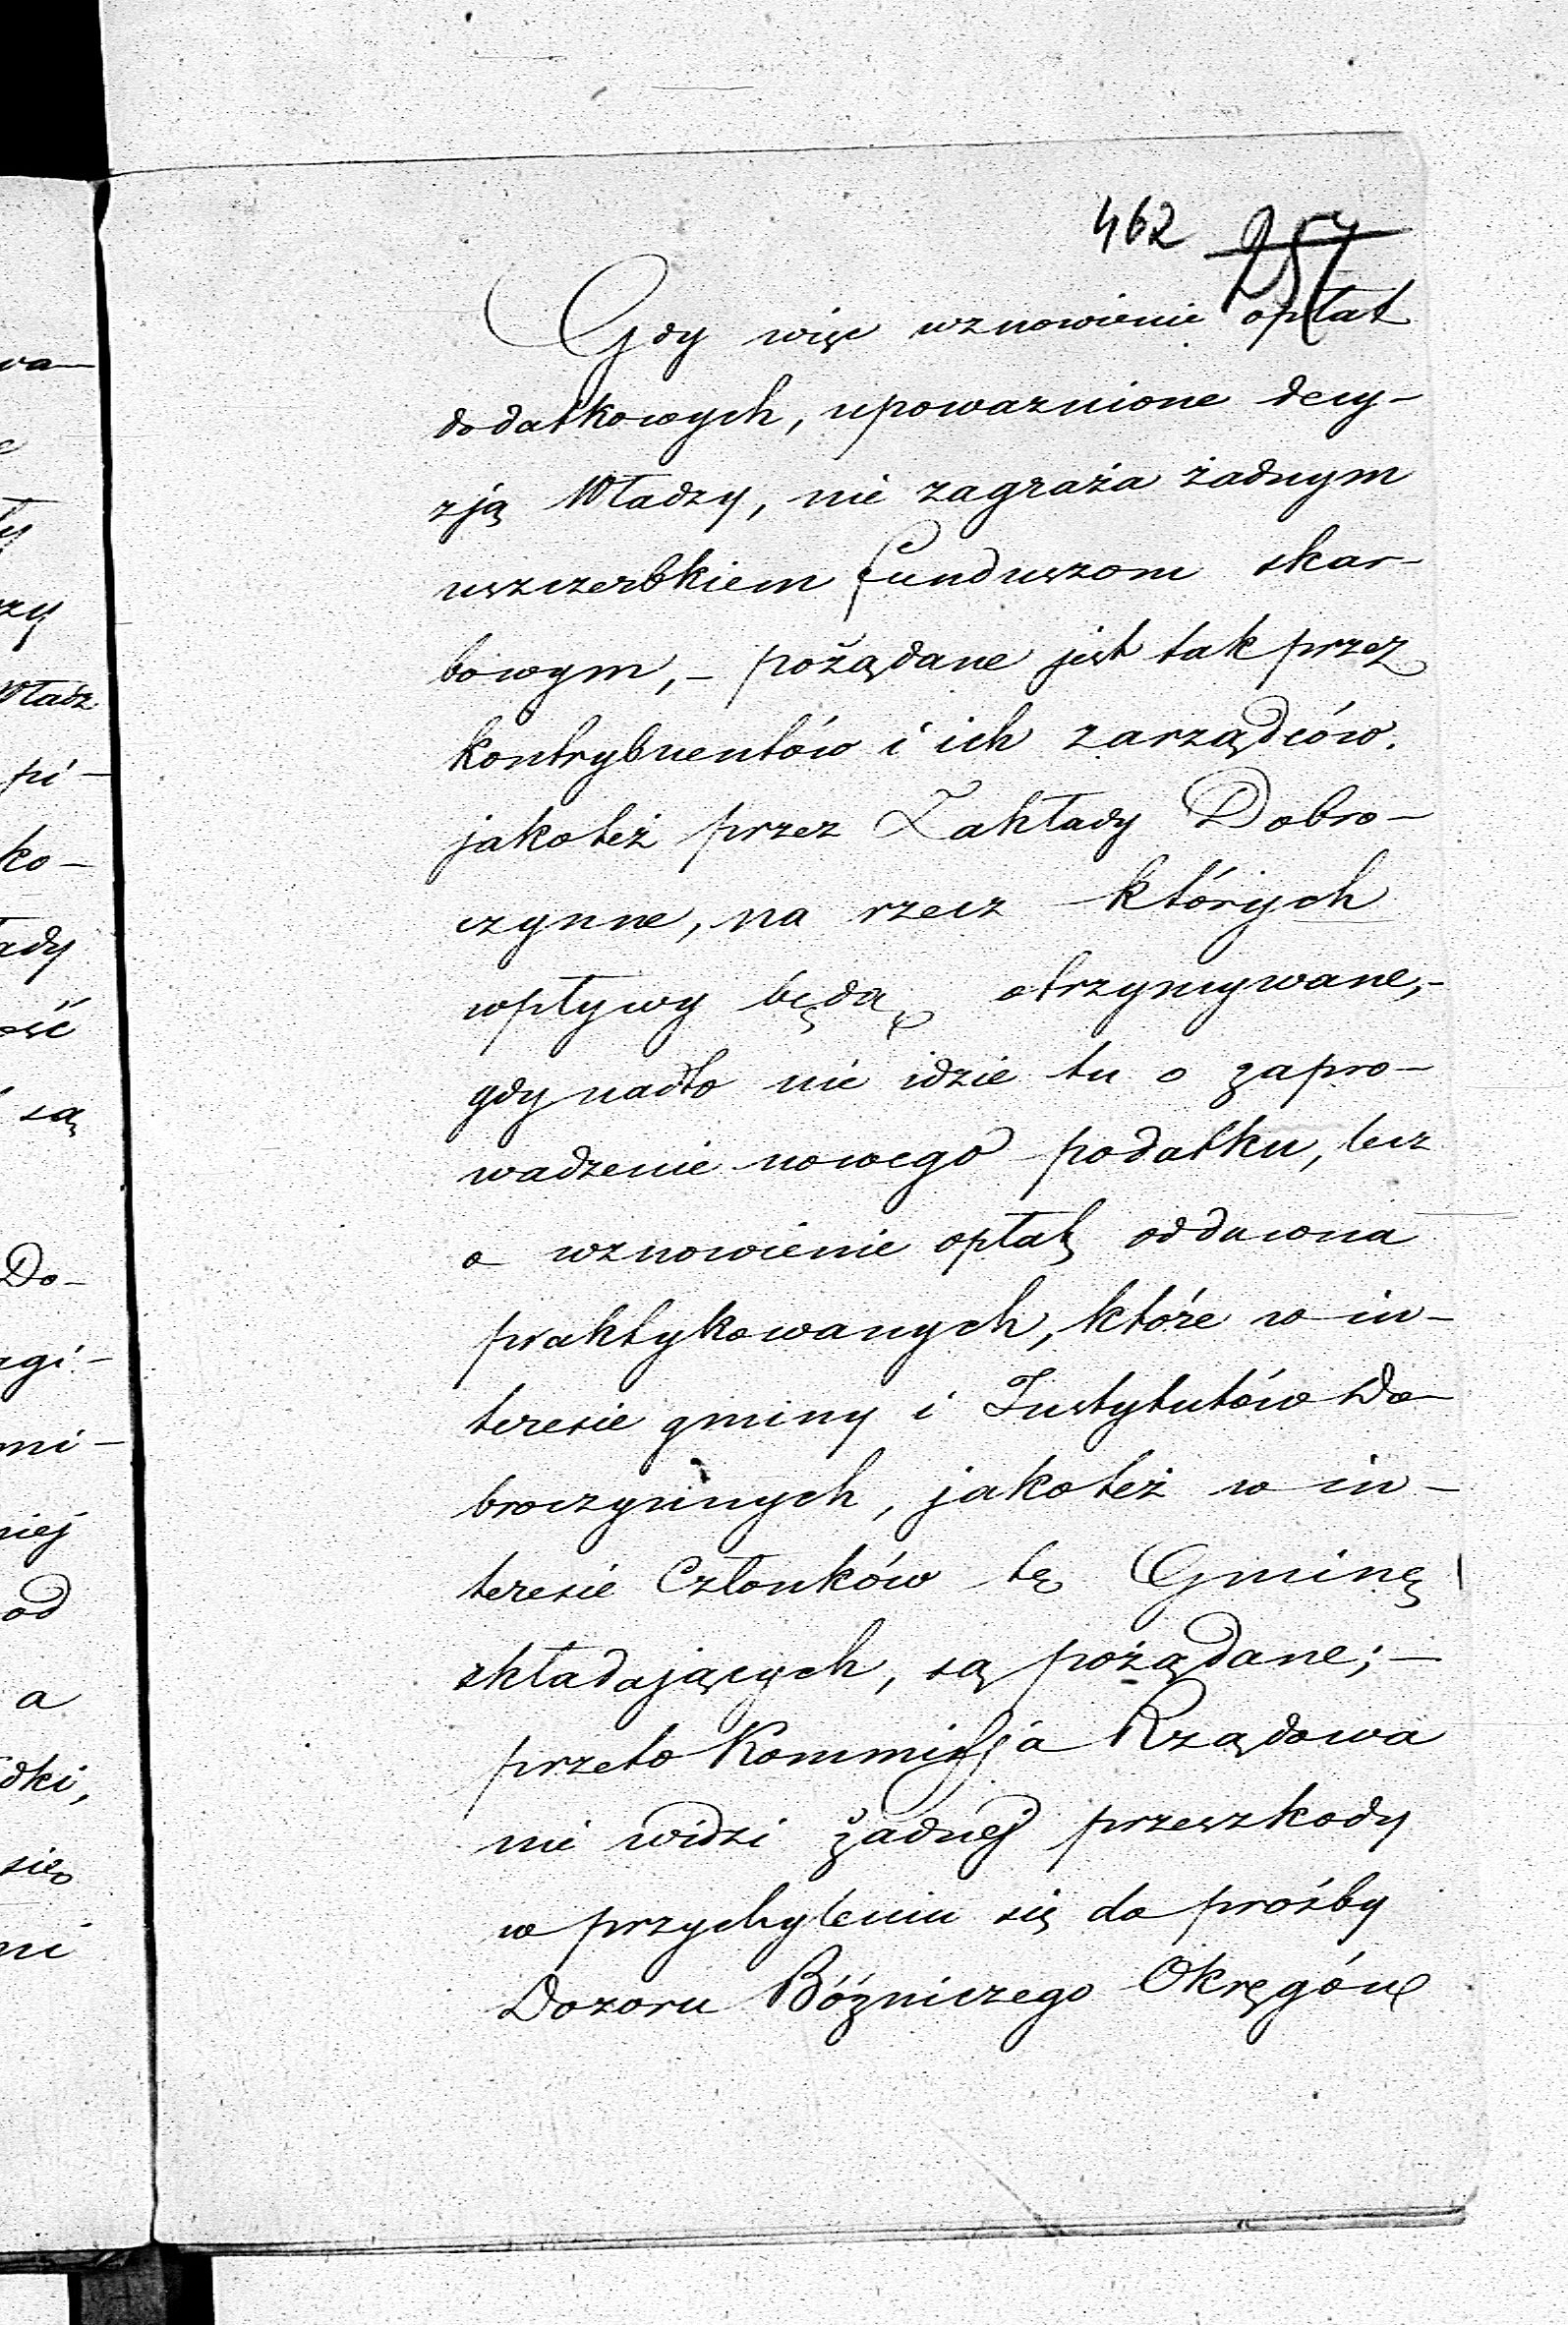 462 257
Gdy więc wznowienie opłat
dodatkowych, upoważnione decy-
zją Władzy, nie zagraża żadnym
uszczerbkiem funduszom skar-
bowym, - pożądane jest tak przez
kontrybuentów i ich zarządców.
jakoteż przez Zakłady Dobro-
czynne, na rzecz których
wpływy będą otrzymywane,-
gdy nadto nie idzie tu o zapro-
wadzenie nowego podatku, lecz
o wznowienie opłat oddawna
praktykowanych, które w in-
teresie gminy i Instytutów Do-
broczynnych, jakoteż w in-
teresie Członków tę Gminę
składających, są pożądane; -
przeto Kommissja Rządowa
nie widzi żadnej przeszkody
w przychyleniu się do prośby
Dozoru Bóżniczego Okręgów
wa-
zy
Władz
pi-
ko-
ady
ość
są
Do-
agi-
mi-
niej
od
a
dki,
się
ni